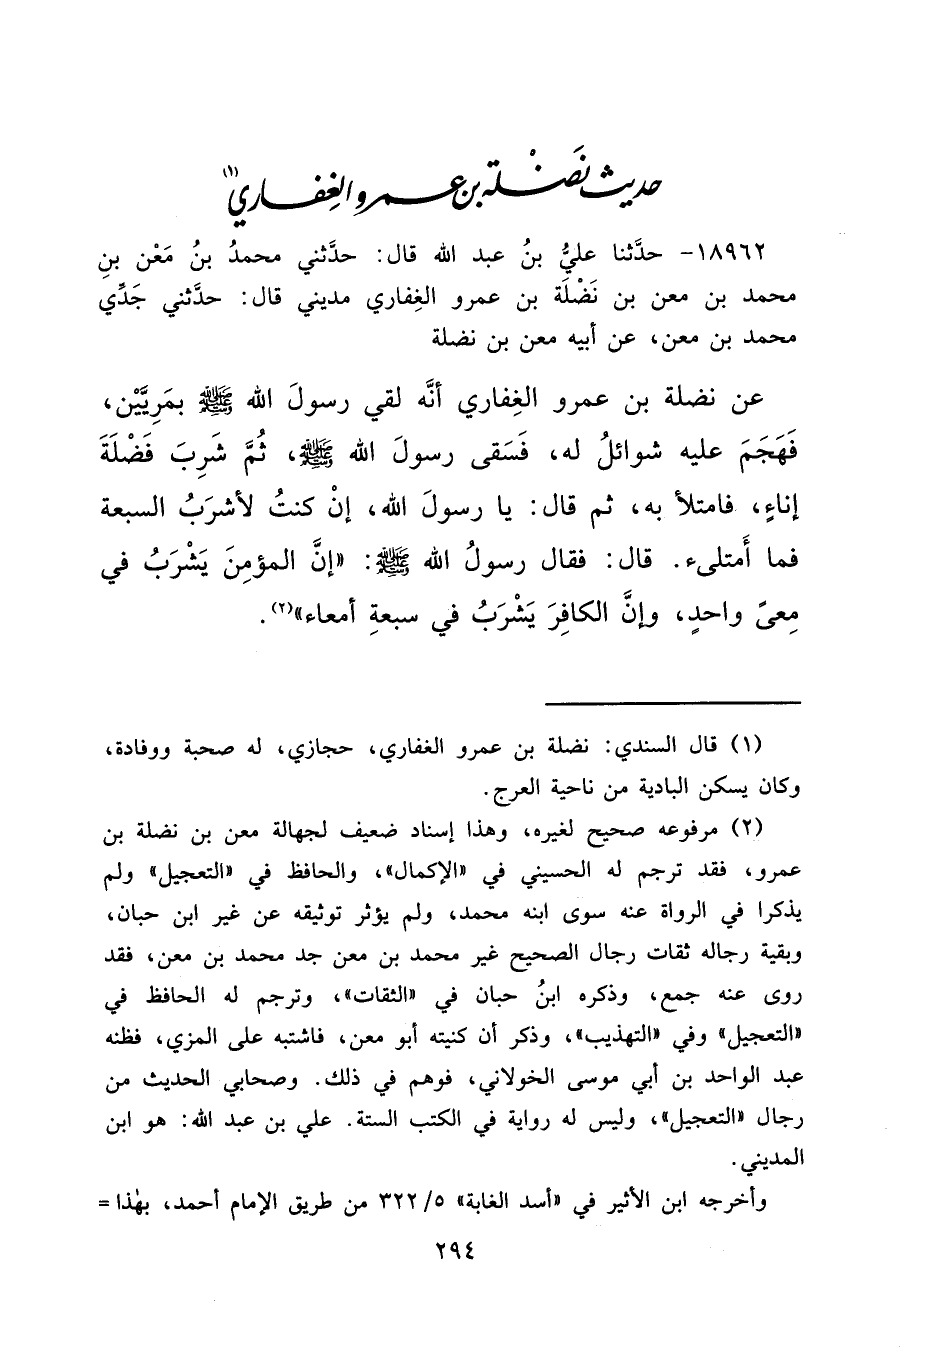 حديث نَضْلة بن عمرو الغِفاري(١)
١٨٩٦٢- حدَّثنا عليُّ بنُ عبد الله قال: حدَّثني محمدُ بنُ مَعْن بنِ
محمد بن معن بن نَضْلَة بن عمرو الغِفاري مديني قال: حدَّثني جَدِّي
محمد بن معن، عن أبيه معن بن نضلة
عن نضلة بن عمرو الغِفاري أنَّه لقي رسولَ الله ﷺ بمَرِيَّيْن،
فَهَجَمَ عليه شوائلُ له، فَسَقى رسولَ الله ﷺ، ثُمَّ شَرِبَ فَضْلَةَ
إناءٍ، فامتلأ به، ثم قال: يا رسولَ الله، إنْ كنتُ لأشرَبُ السبعة
فما أَمتلىء. قال: فقال رسولُ الله ﷺ: «إنَّ المؤمِنَ يَشْرَبُ في
مِعىً واحدٍ، وإنَّ الكافِرَ يَشْرَبُ في سبعةِ أمعاء»(٢).
(١) قال السندي: نضلة بن عمرو الغفاري، حجازي، له صحبة ووفادة،
وكان يسكن البادية من ناحية العرج.
(٢) مرفوعه صحيح لغيره، وهذا إسناد ضعيف لجهالة معن بن نضلة بن
عمرو، فقد ترجم له الحسيني في «الإكمال»، والحافظ في «التعجيل» ولم
يذكرا في الرواة عنه سوى ابنه محمد، ولم يؤثر توثيقه عن غير ابن حبان،
وبقية رجاله ثقات رجال الصحيح غير محمد بن معن جد محمد بن معن، فقد
روى عنه جمع، وذكره ابنُ حبان في «الثقات»، وترجم له الحافظ في
«التعجيل» وفي «التهذيب»، وذكر أن كنيته أبو معن، فاشتبه على المزي، فظنه
عبد الواحد بن أبي موسى الخولاني، فوهم في ذلك. وصحابي الحديث من
رجال «التعجيل»، وليس له رواية في الكتب الستة. علي بن عبد الله: هو ابن
المديني.
وأخرجه ابن الأثير في «أسد الغابة» ٣٢٢/٥ من طريق الإمام أحمد، بهٰذا =
٢٩٤